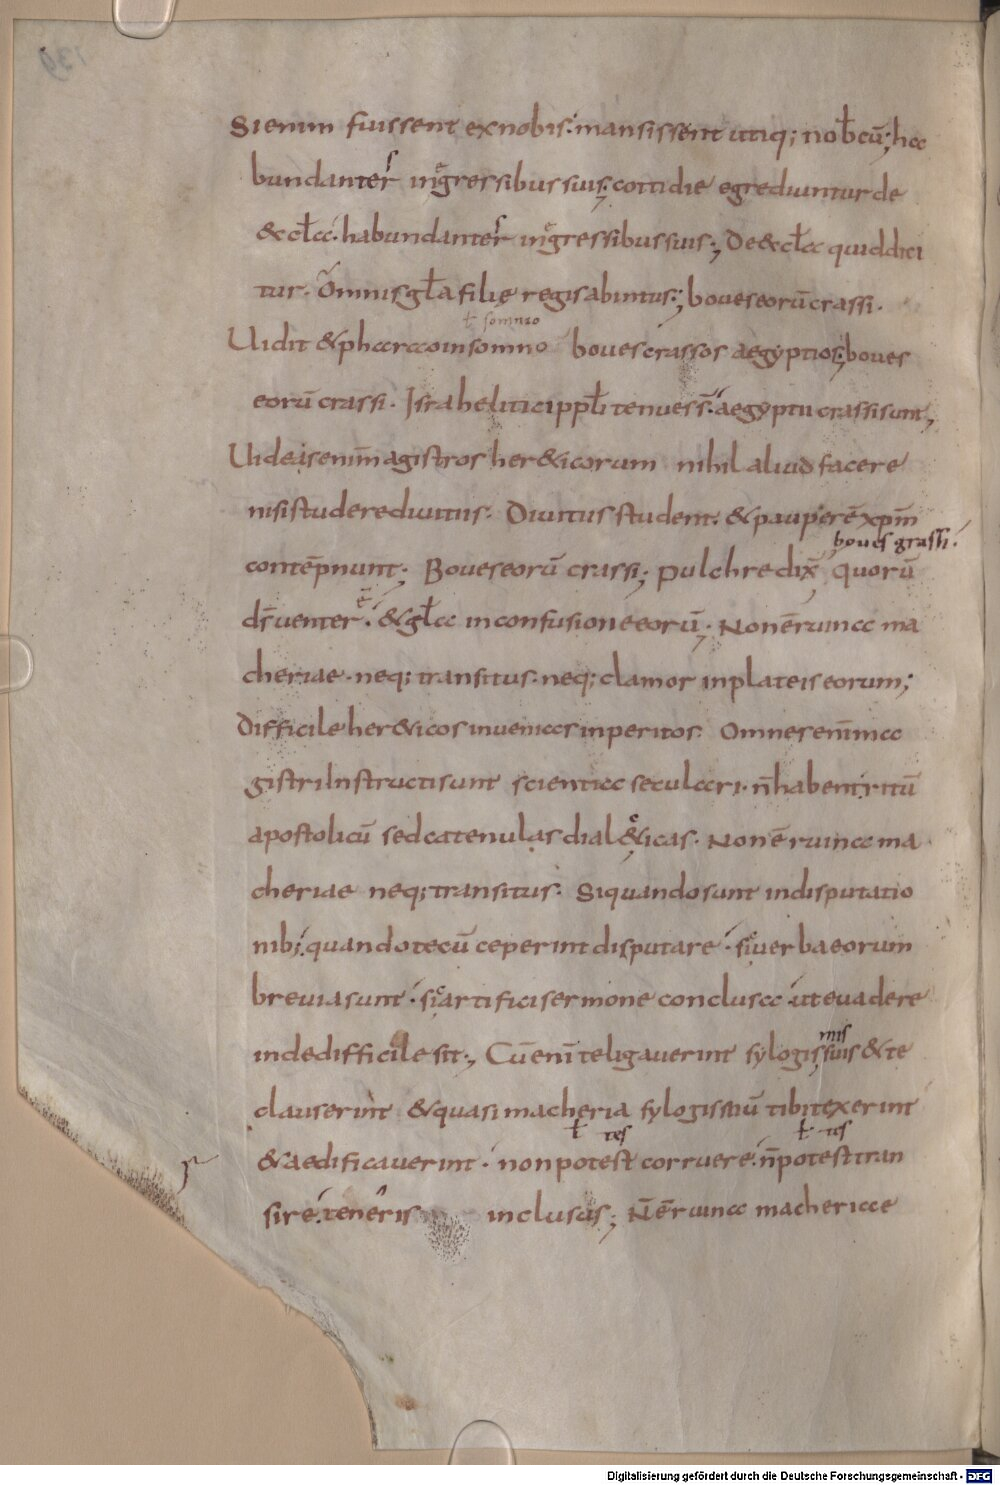 Si enim fuissent ex nobis: mansissent utiq; nobcū; ha
bundanter ingressibus suis; cottidie egrediuntur de
& cł́a. habundanter ingressibus suis; De & cła quid dici
tur. Omnis gła filię regis abintus; boues eorū crassi.
ł somnio
Uidit & pharao insomno boues crassos aegyptios; boues
eorū crassi. Israhelitici ppłi tenues s̄. aegyptii crassi sunt,
Uideis enim magistros her&icorum nihil aliud facere
nisi studere diuitiis. Diuitiis student. & pauperē xpm̄
boues grassi.
contēpnunt; Boues eorū crassi; pulchre dix̄ quorū
ē
dr̄ uenter. & gła in confusione eorū; Non ē ruina ma
cheriae. neq; transitus. neq; clamor in plateis eorum;
Difficile her&icos inuenias inperitos. Omnes enim ma
gistri Instructi sunt scientia seculari. n̄ habent ritū
apostolicū sed catenulas dial&icas. Non ē ruina ma
cheriae neq; transitus. Si quando sunt in disputatio
nib; quando tecū ceperint disputare. si uerba eorum
breuia sunt. si artifici sermone conclusa. ut euadere
mis
inde difficile sit; Cū enī te ligauerint sylogissuis & te
clauserint & quasi macheria sylogismū tibi texerint
ł tes ł tes
& aedificauerint. non potest corruere. n̄ potest tran
sire. teneris inclusus; N̄ ē ruina machericae
139
Digitalisierung gefördert durch die Deutsche Forschungsgemeinschaft - DFG